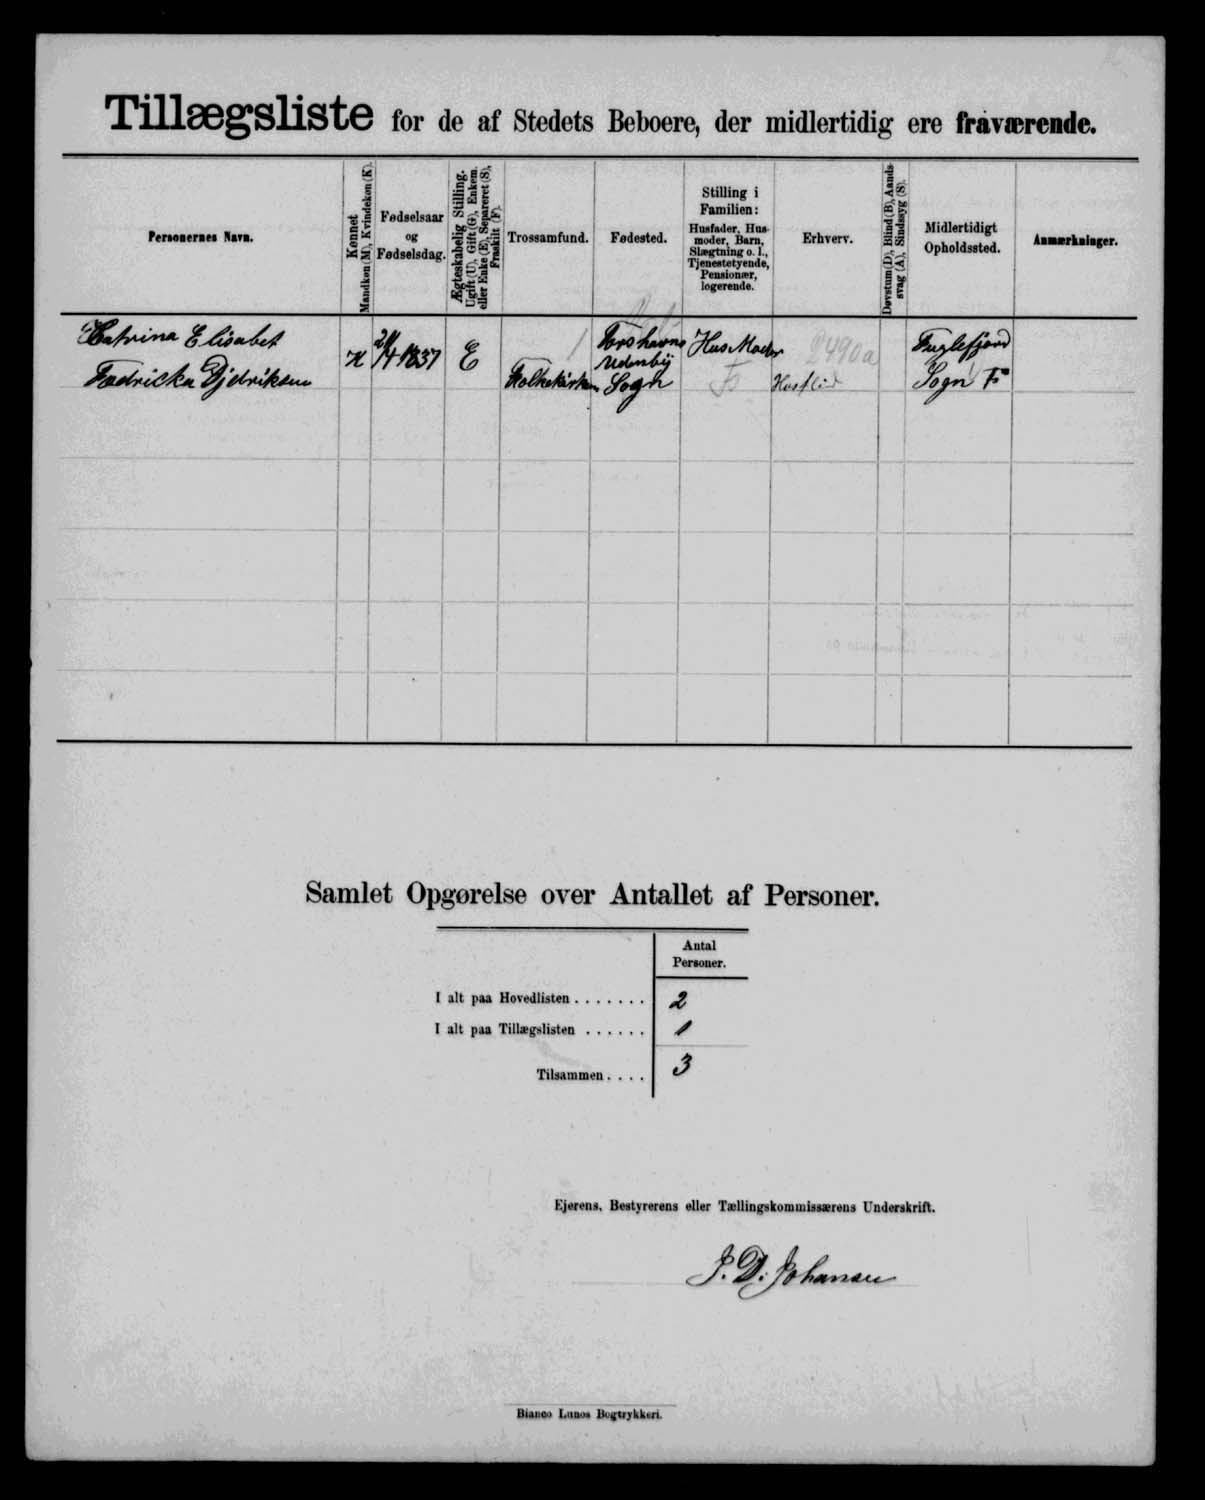 Tillægsliste for de af Stedets Beboere, der midlertidig ere fraværende.
Personernes Navn.
Kønnet
Mandkøn (M), Kvindekøn (K).
Fødselsaar
og
Fødselsdag.
Ægteskabelig Stilling.
Ugift (U), Gift (G), Enkem.
eller Enke (E), Separeret (S),
Fraskilt (F).
Trossamfund.
Fødested.
Stilling i
Familien:
Husfader, Hus-
moder, Barn,
Slægtning o. l.,
Tjenestetyende,
Pensionær,
logerende.
Erhverv.
Døvstum (D), Blind (B), Aands-
svag (A), Sindssyg (S).
Midlertidigt
Opholdssted.
Anmærkninger.
Catrina Elisabet
Fredricka Djdriksen
K
1837
E
Folkekirken
Torshavns
Udenbij
Sogn
HusModer
F
2490a
Husflid
Fuglefjord
Sogn F
Samlet Opgørelse over Antallet af Personer.
Antal
Personer.
I alt paa Hovedlisten . . . . . . . 2
I alt paa Tillægslisten . . . . . . 1
Tilsammen . . . . 3
Ejerens, Bestyrerens eller Tællingskommissærens Underskrift.
J. D. Johansen
Bianco Lunos Bogtrykkeri.